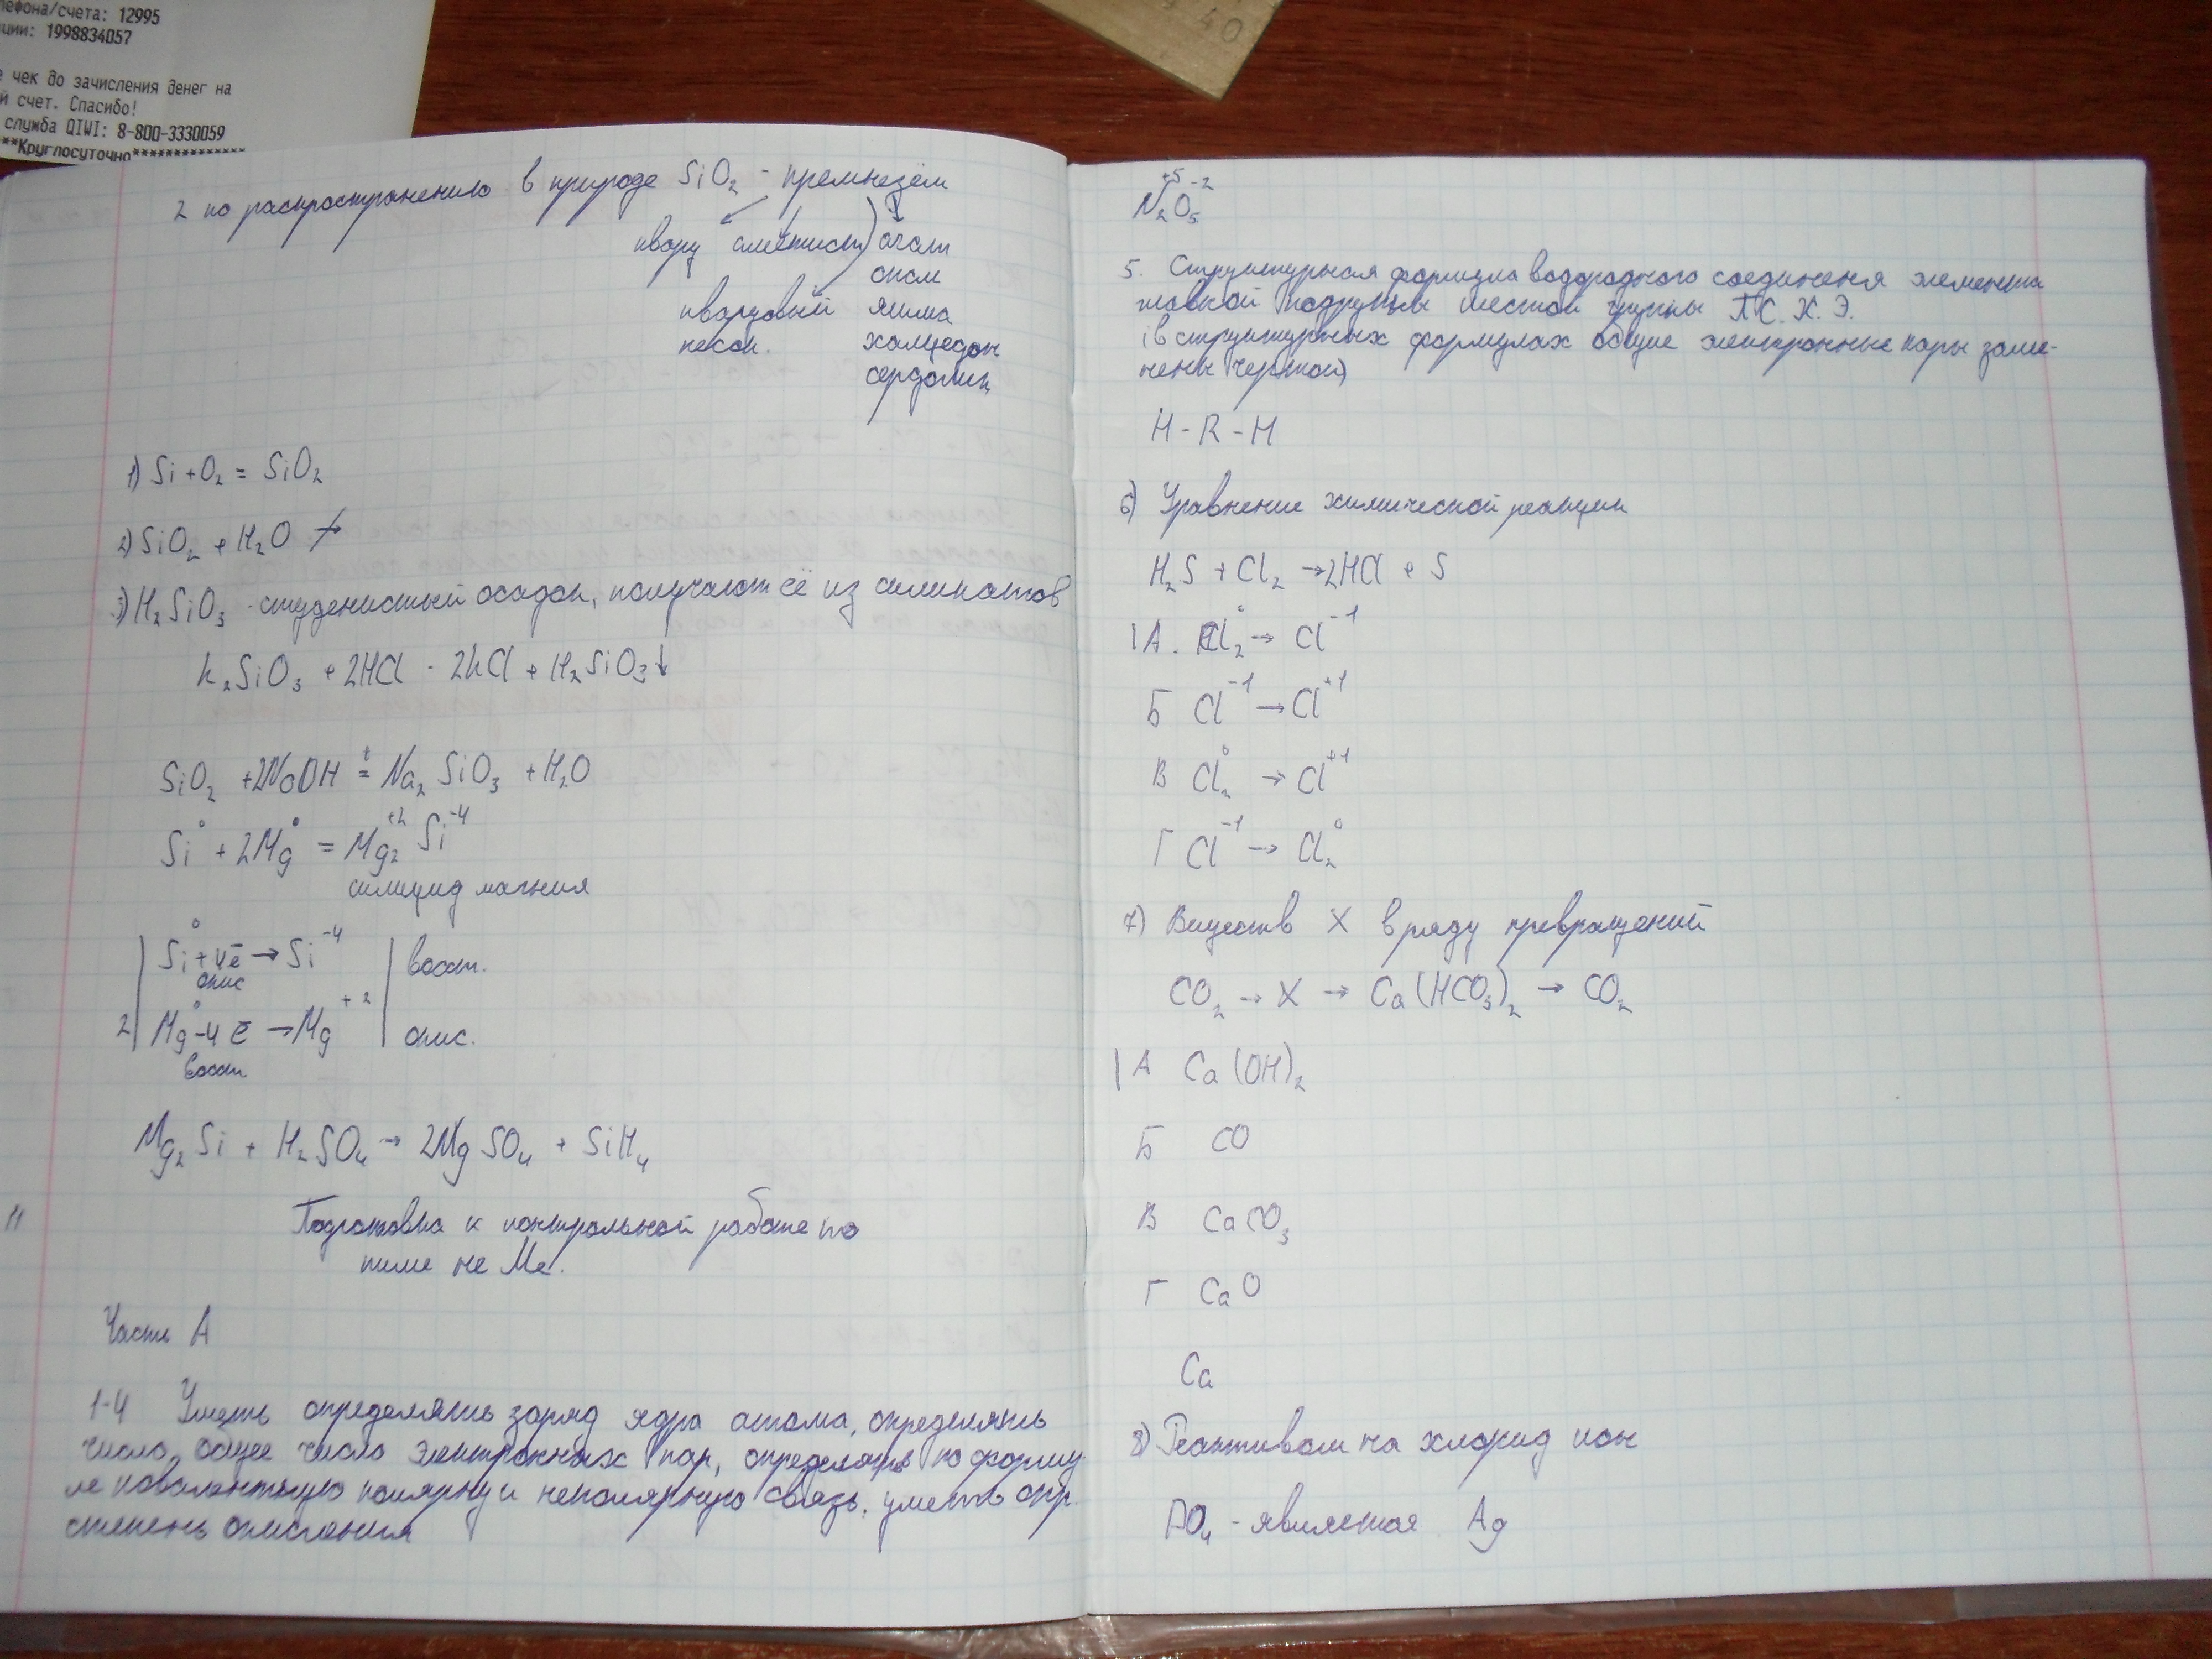 лефона/счета: 12995
ции: 1998834057
е чек до зачисления денег на
й счет. Спасибо!
служба QIWI: 8-800-3330059
**Круглосуточно**************
40
2 по распространению в природе SiO₂ - кремнезём
кварц аметист агат
опал
кварцевый яшма
песок. халцедон
сердолик
1) Si + O₂ = SiO₂
2) SiO₂ + H₂O ↛
3) H₂SiO₃ - студенистый осадок, получают её из силикатов
K₂SiO₃ + 2HCl - 2KCl + H₂SiO₃↓
SiO₂ + 2NaOH =ᵗ Na₂SiO₃ + H₂O
Si⁰ + 2Mg⁰ = Mg₂⁺² Si⁻⁴
силицид магния
Si⁰ + 4ē → Si⁻⁴ | восст.
окис
2| Mg⁰ - 4ē → Mg⁺² | окис.
восст
Mg₂Si + H₂SO₄ → 2MgSO₄ + SiH₄
11
Подготовка к контрольной работе по
теме не Ме.
Часть А
1-4 Уметь определять заряд ядра атома, определять
число, общее число электронных пар, определять по форму
ле ковалентную полярную и неполярную связь, уметь опр.
степень окисления
N₂⁺⁵O₅⁻²
5. Структурная формула водородного соединеня элемента
главной подгруппы шестой группы П.С.Х.Э.
(в структурных формулах общие электронные пары заме-
нены чертой)
H - R - H
6) Уравнение химической реакции
H₂S + Cl₂ → 2HCl + S
| А. Cl₂⁰ → Cl⁻¹
Б Cl⁻¹ → Cl⁺¹
В Cl₂⁰ → Cl⁺¹
Г Cl⁻¹ → Cl₂⁰
7) Веществ X в ряду превращений
CO₂ → X → Ca(HCO₃)₂ → CO₂
| А Ca(OH)₂
Б CO
В CaCO₃
Г CaO
Ca
8) Реактивом на хлорид ион
PO₄ - является Ag